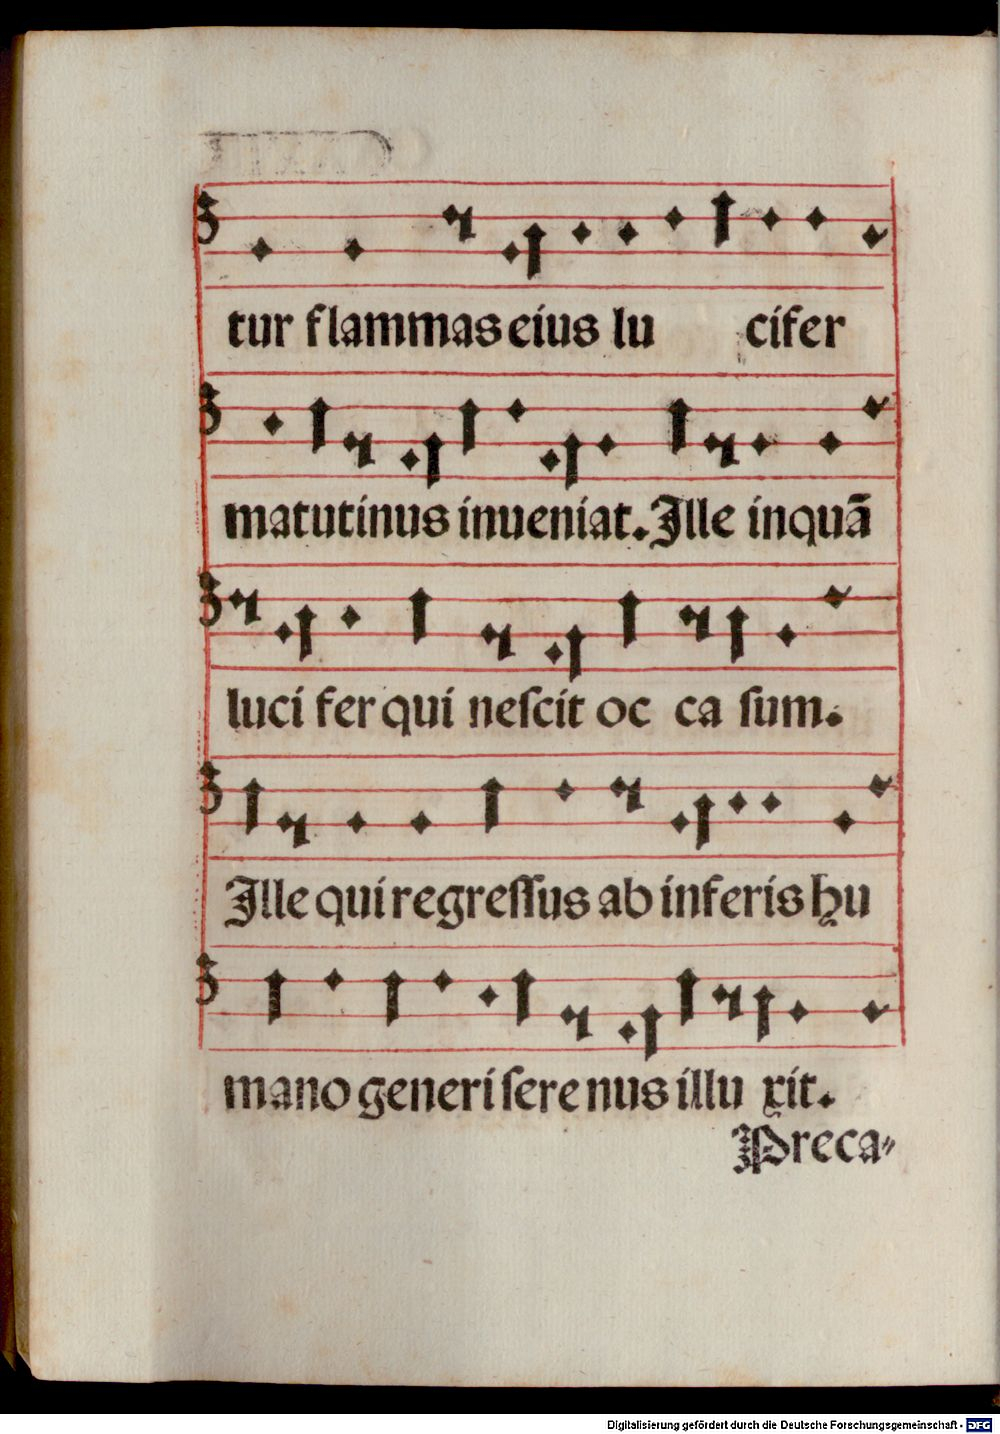 tur flammas eius lu cifer
matutinus inueniat. Ille inquã
luci fer qui neſcit oc ca ſum.
Ille qui regreſſus ab inferis hu
mano generi ſere nus illu xit.
Preca⸗
Digitalisierung gefördert durch die Deutsche Forschungsgemeinschaft - DFG